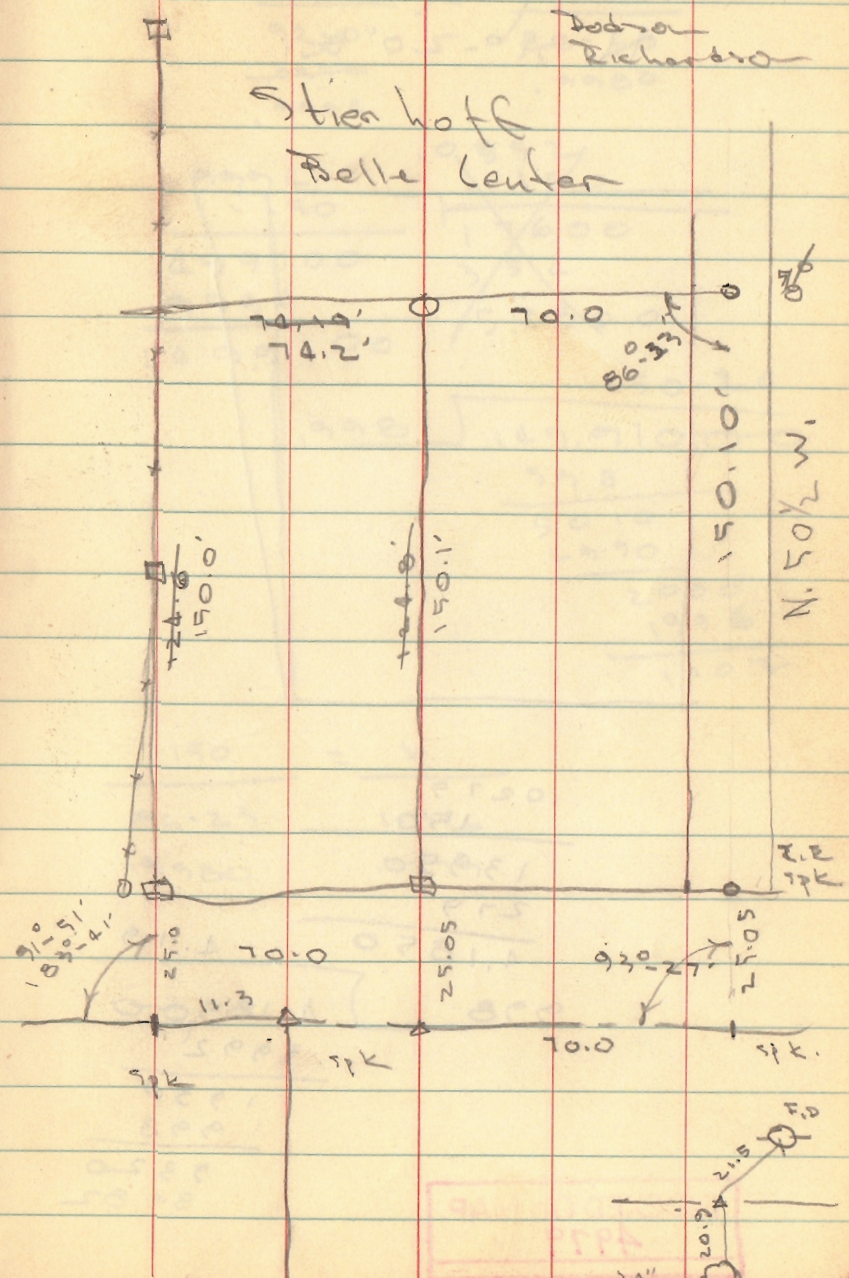 Dodson
Richardson
Stierhoff
Belle Center
74.19'
74.2'
70.0
86°-33'
150.10'
N. 50½ W.
124.6
150.0'
124.8'
150.1'
spk
91°-51'
183°-41'
25.0
70.0
25.05
93°-27'
25.05
11.3
spk
spk
70.0
spk.
21.5
20.9